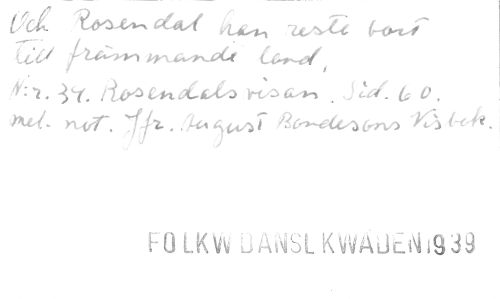 Och Rosendal han reste bort
till främmande land,
N:r. 34. Rosendalsvisan. Sid. 60.
mel. not. Jfr. August Bondesons Visbok.
FOLKW DANSL KWÄDEN 1939